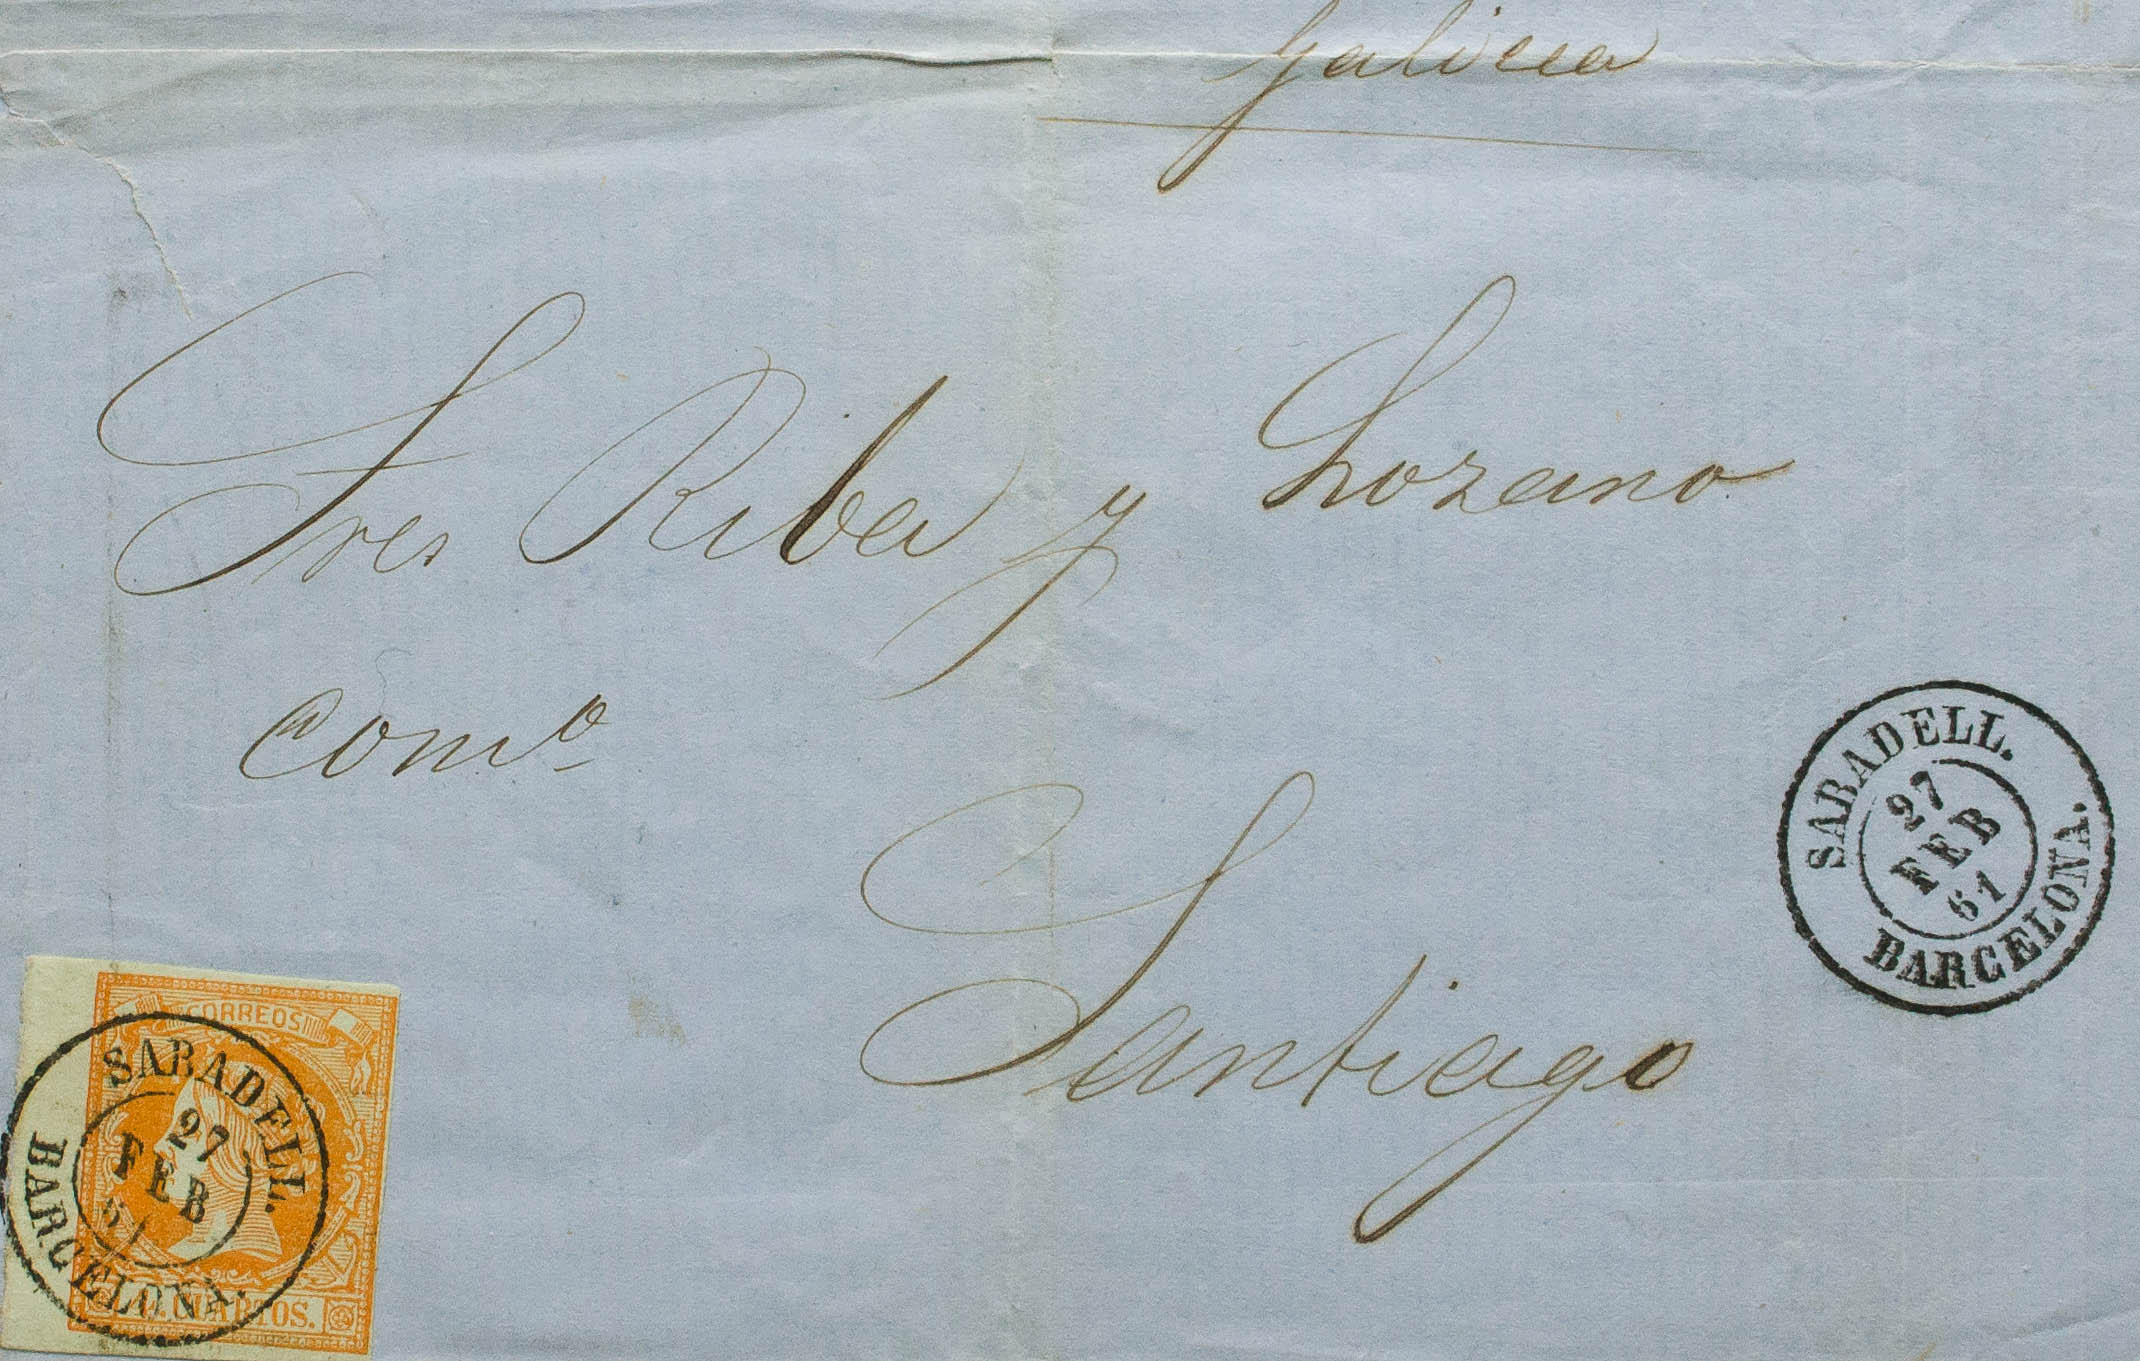 Galicia
Sres Riba y Lozano
Como
Santiago
SABADELL.
27
FEB
61
BARCELONA.
CORREOS
SABADELL.
27
FEB
61
BARCELONA.
CUARTOS.